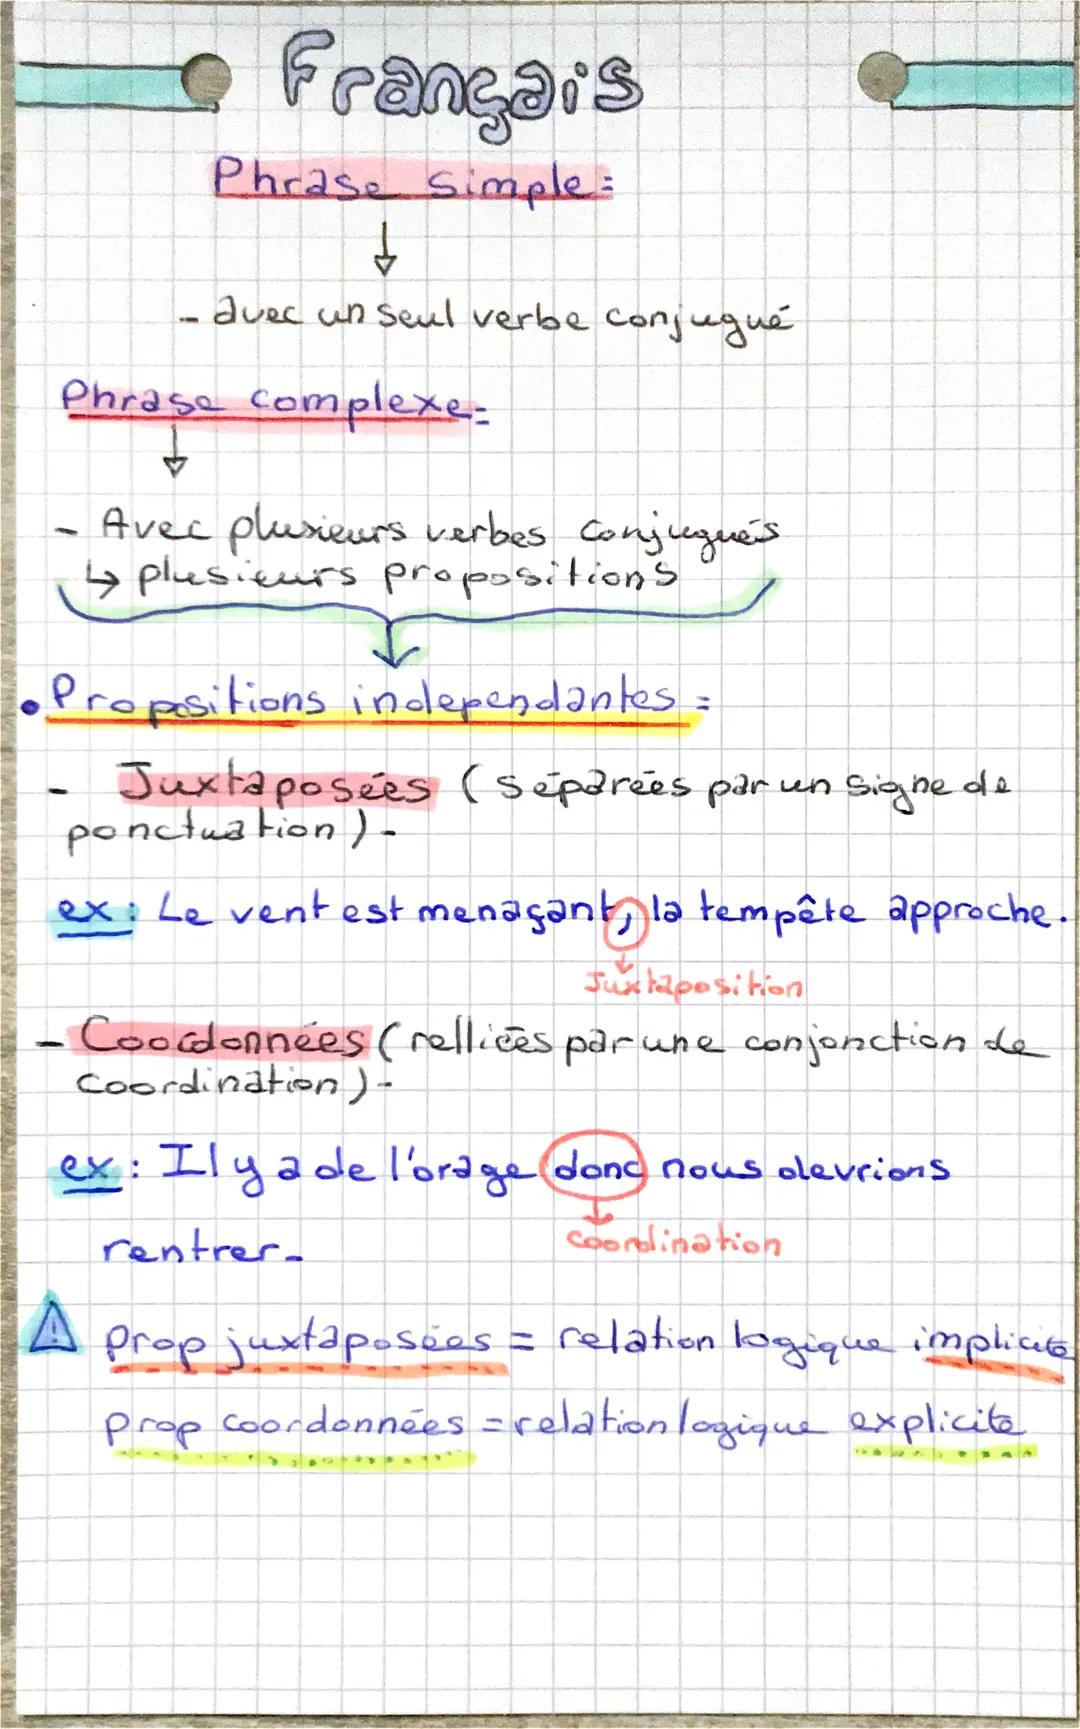 Français
Phrase simple:
- avec un seul verbe conjugué
Phrase complexe:
- Avec plusieurs verbes conjugués
↳ plusieurs propositions
• Propositions independantes :
- Juxtaposées (séparées par un signe de
ponctuation).
ex : Le vent est menaçant, la tempête approche.
Juxtaposition
- Coordonnées (relliées par une conjonction de
coordination).
ex : Il y a de l'orage donc nous devrions
rentrer.
coordination
⚠ prop juxtaposées = relation logique implicite
prop coordonnées = relation logique explicite